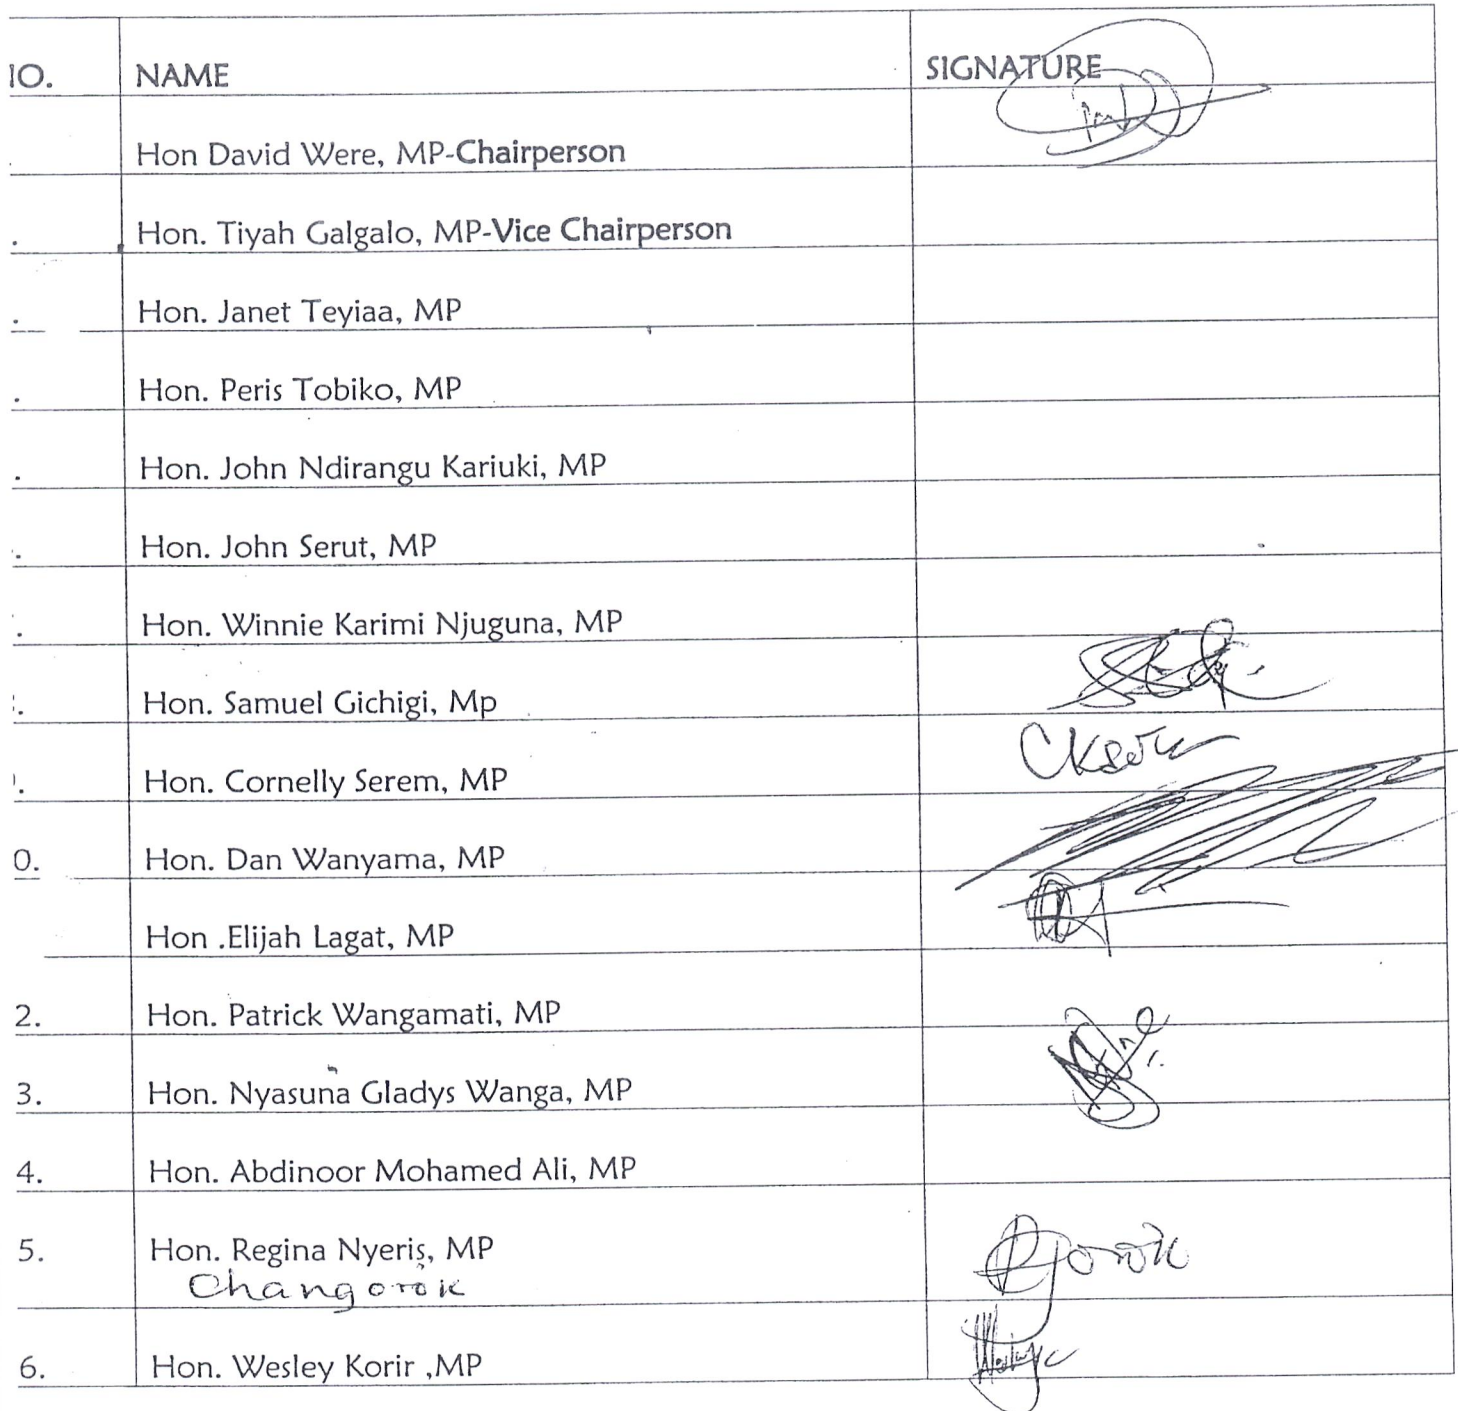 NO. NAME SIGNATURE
. Hon David Were, MP-Chairperson
. Hon. Tiyah Galgalo, MP-Vice Chairperson
. Hon. Janet Teyiaa, MP
. Hon. Peris Tobiko, MP
. Hon. John Ndirangu Kariuki, MP
. Hon. John Serut, MP
. Hon. Winnie Karimi Njuguna, MP
. Hon. Samuel Gichigi, Mp
. Hon. Cornelly Serem, MP
0. Hon. Dan Wanyama, MP
Hon .Elijah Lagat, MP
2. Hon. Patrick Wangamati, MP
3. Hon. Nyasuna Gladys Wanga, MP
4. Hon. Abdinoor Mohamed Ali, MP
5. Hon. Regina Nyeris, MP
Changorok
6. Hon. Wesley Korir ,MP